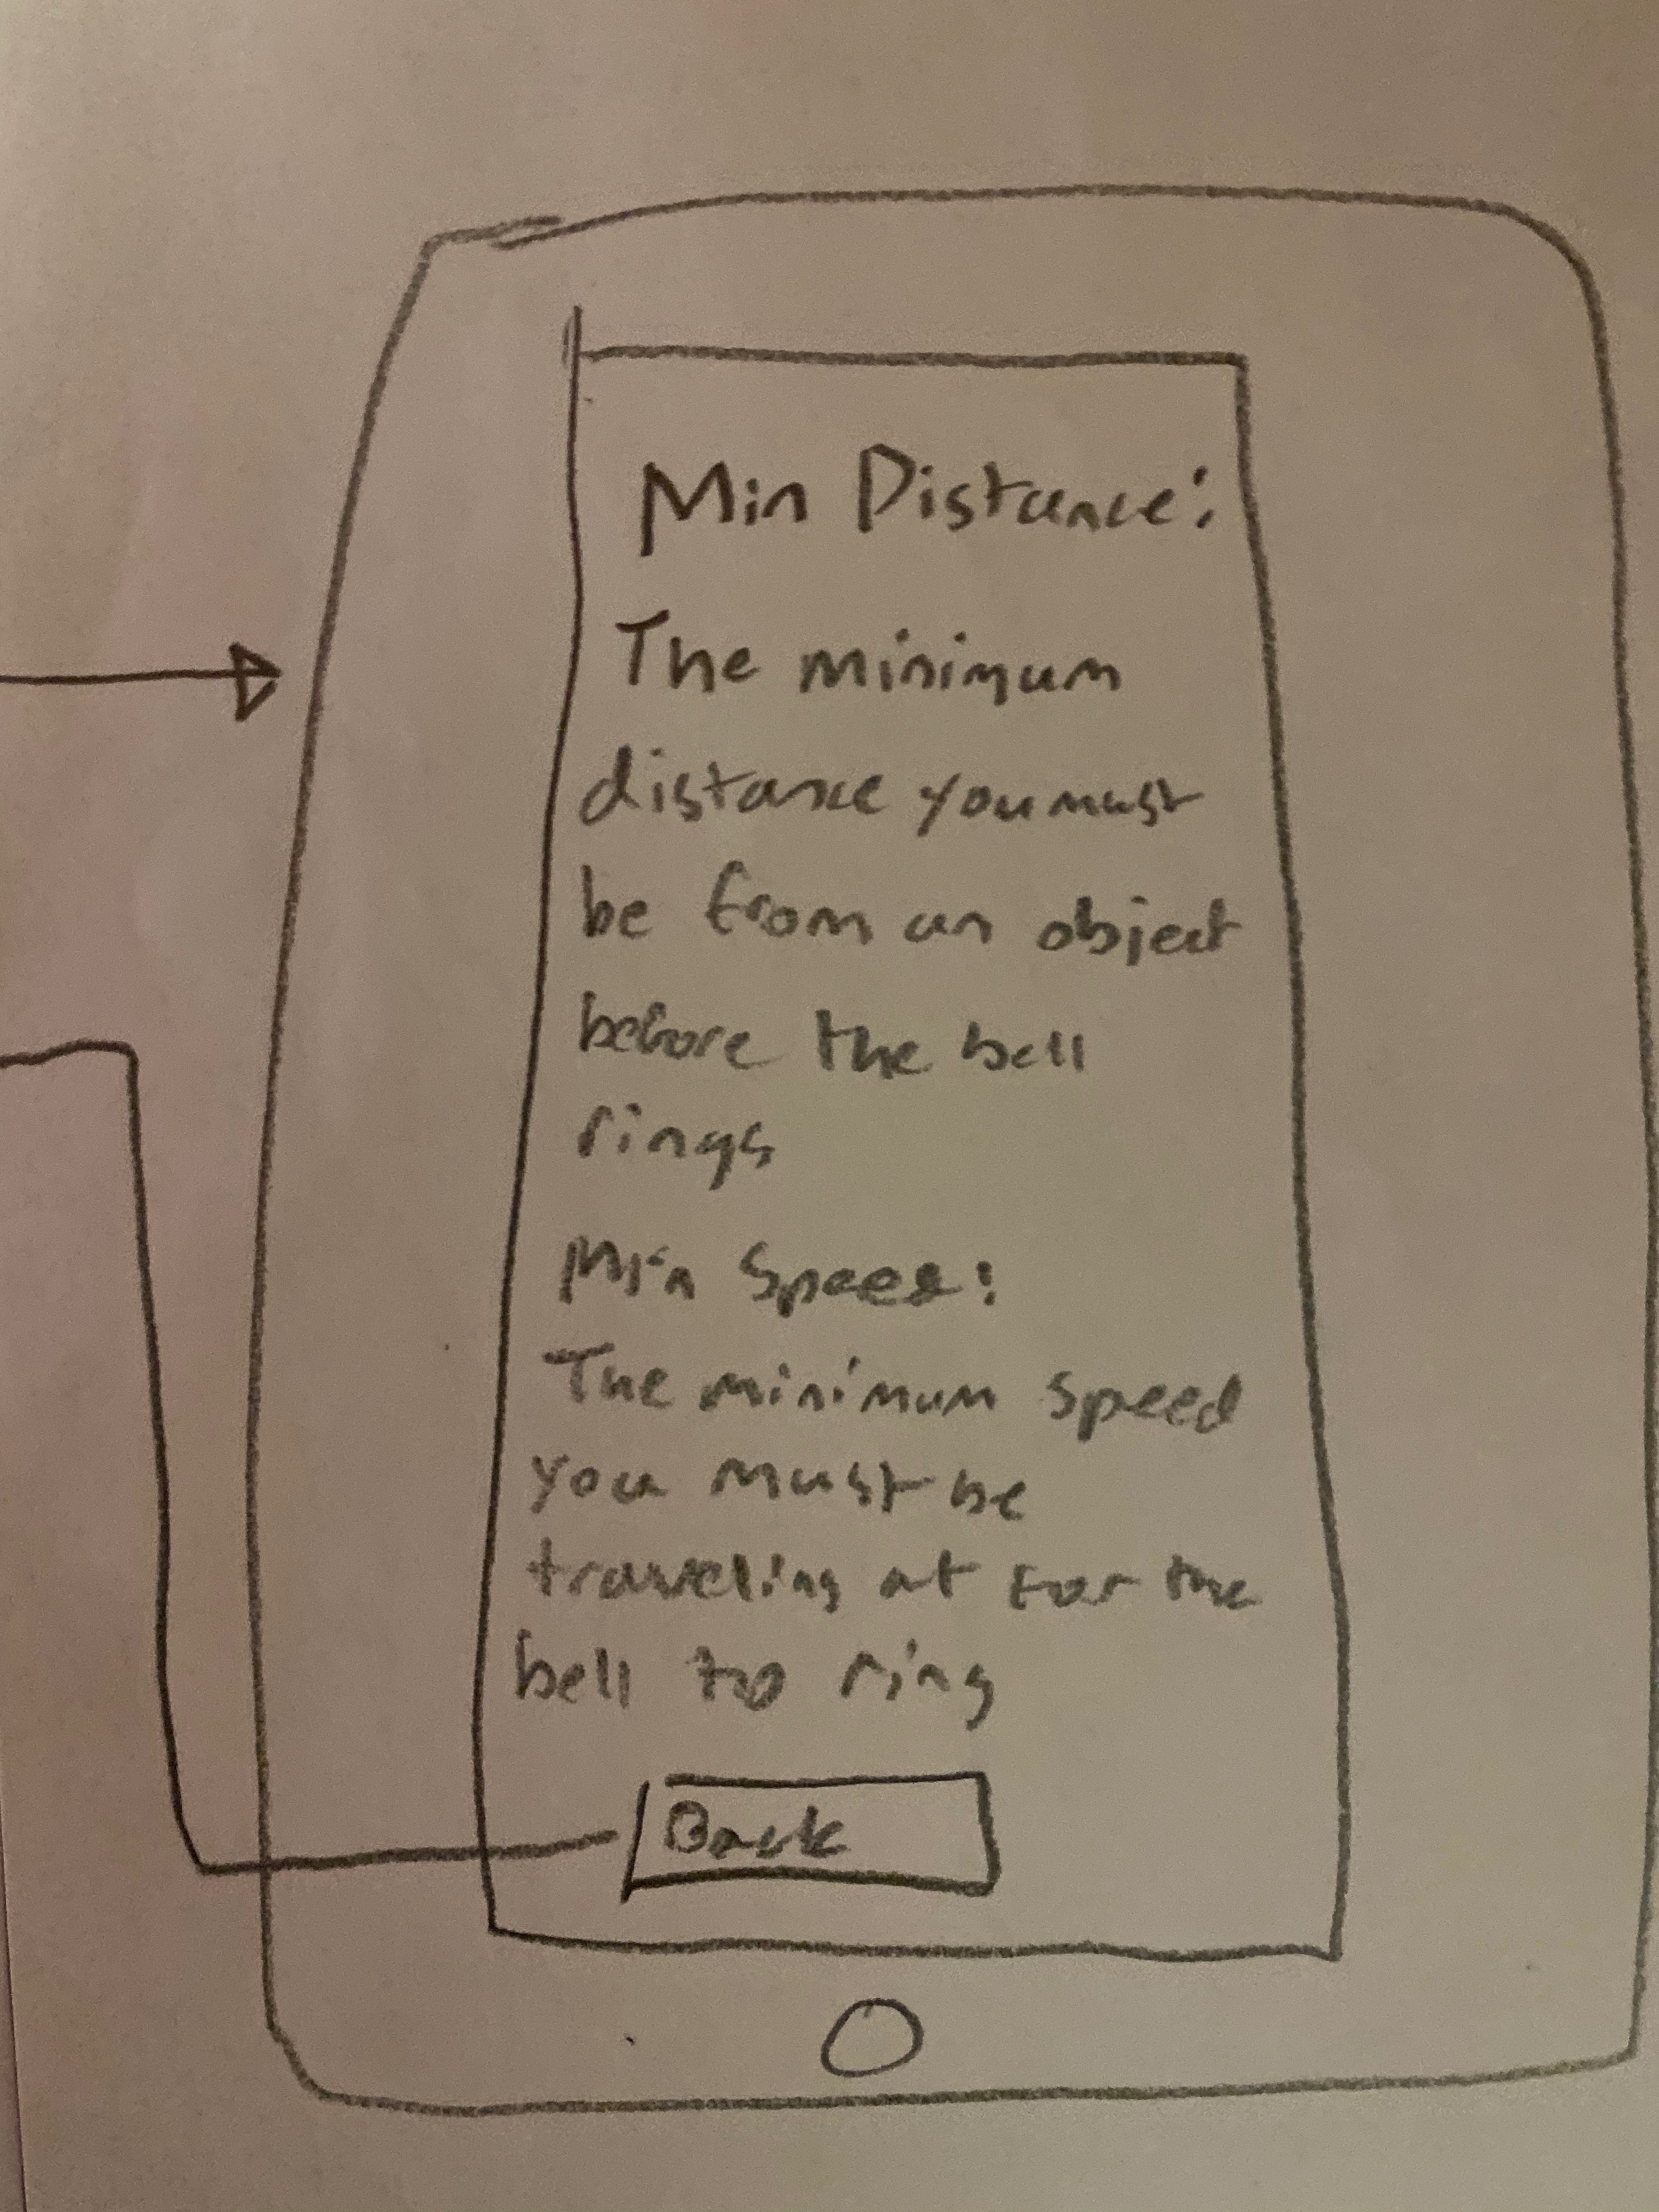 Min Distance:
The minimum
distance you must
be from an object
before the bell
rings
Min Speed:
The minimum speed
you must be
traveling at for the
bell to ring
Back